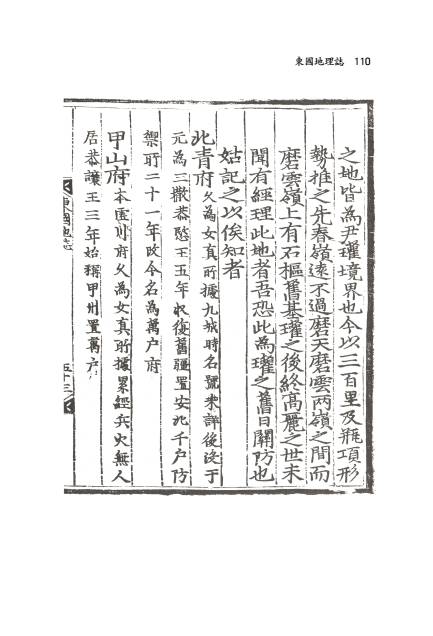 東國地理誌 110
之地皆為尹瓘境界也今以三百里及甁項形
勢推之先春嶺遠不過磨天磨雲兩嶺之間而
磨雲嶺上有石樞舊基瓘之後終高麗之世未
聞有經理此地者吾恐此為瓘之舊日關防也
姑記之以俟知者
北青府 久為女真所據九城時名號未詳後沒于
元為三撒恭愍王五年收復舊疆置安北千戶防
禦所二十一年改今名為萬戶府
甲山府 本虛川府久為女真所據累經兵火無人
居恭讓王三年始稱甲州置萬戶
東國地誌 五十三